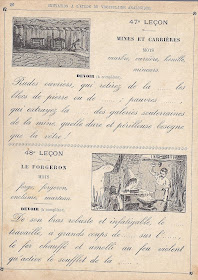 47e LEÇON
MINES ET CARRIÈRES
MOTS
marbre, carrière, houille,
mineurs.
DEVOIR (à compléter).
Rudes ouvriers, qui retirez de la ..... les
blocs de pierre ou de ..... , pauvres .....
qui extrayez la ..... des galeries souterraines
de la mine, quelle dure et périlleuse besogne
que la vôtre!
48e LEÇON
LE FORGERON
MOTS
forge, forgeron,
enclume, marteau.
DEVOIR (à compléter).
De son bras robuste et infatigable, le .....
travaille, à grands coups de ..... sur l' .....
le fer chauffé et amolli au feu violent
qu'active le soufflet de la .....